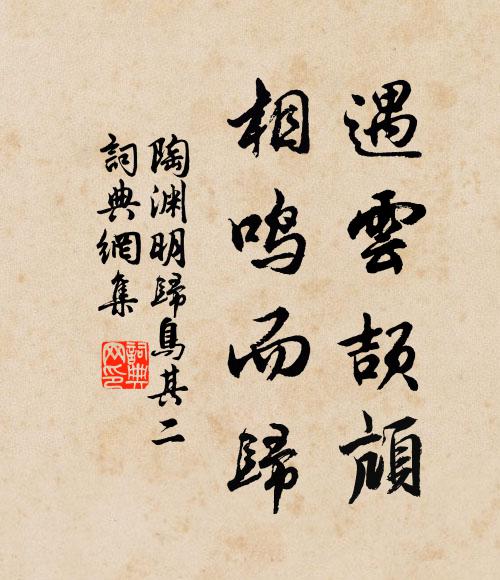 遇雲頡頏
相鸣而歸
陶渊明歸鳥其二
詞典網集
詞典
网印